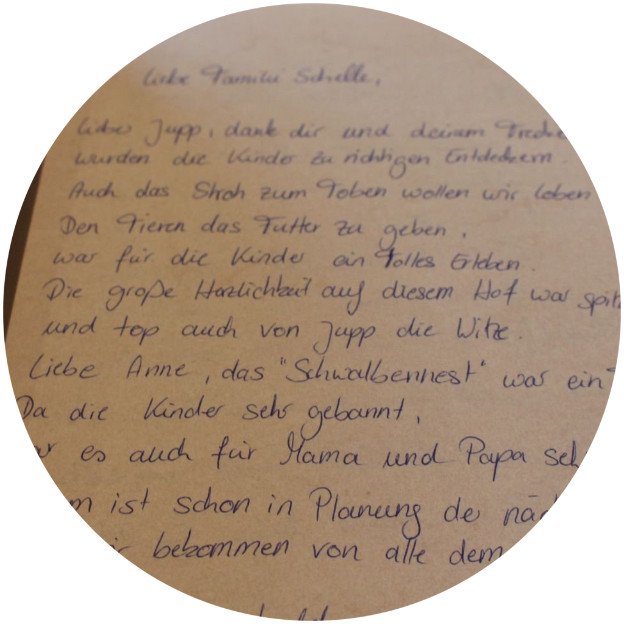 Liebe Familie Schelle,
Lieber Jupp, dank dir und deinem
wurden die Kinder zu richtigen Entdeckern.
Auch das Stroh zum Toben wollen wir loben
Den Tieren das Futter zu geben,
war für die Kinder ein tolles Erleben.
Die große Herzlichkeit auf diesem Hof war
und top auch von Jupp die Witze.
Liebe Anne, das "Schwalbennest" war ein
Da die Kinder sehr gebannt,
es auch für Mama und Papa
ist schon in Planung de
bekommen von alle dem